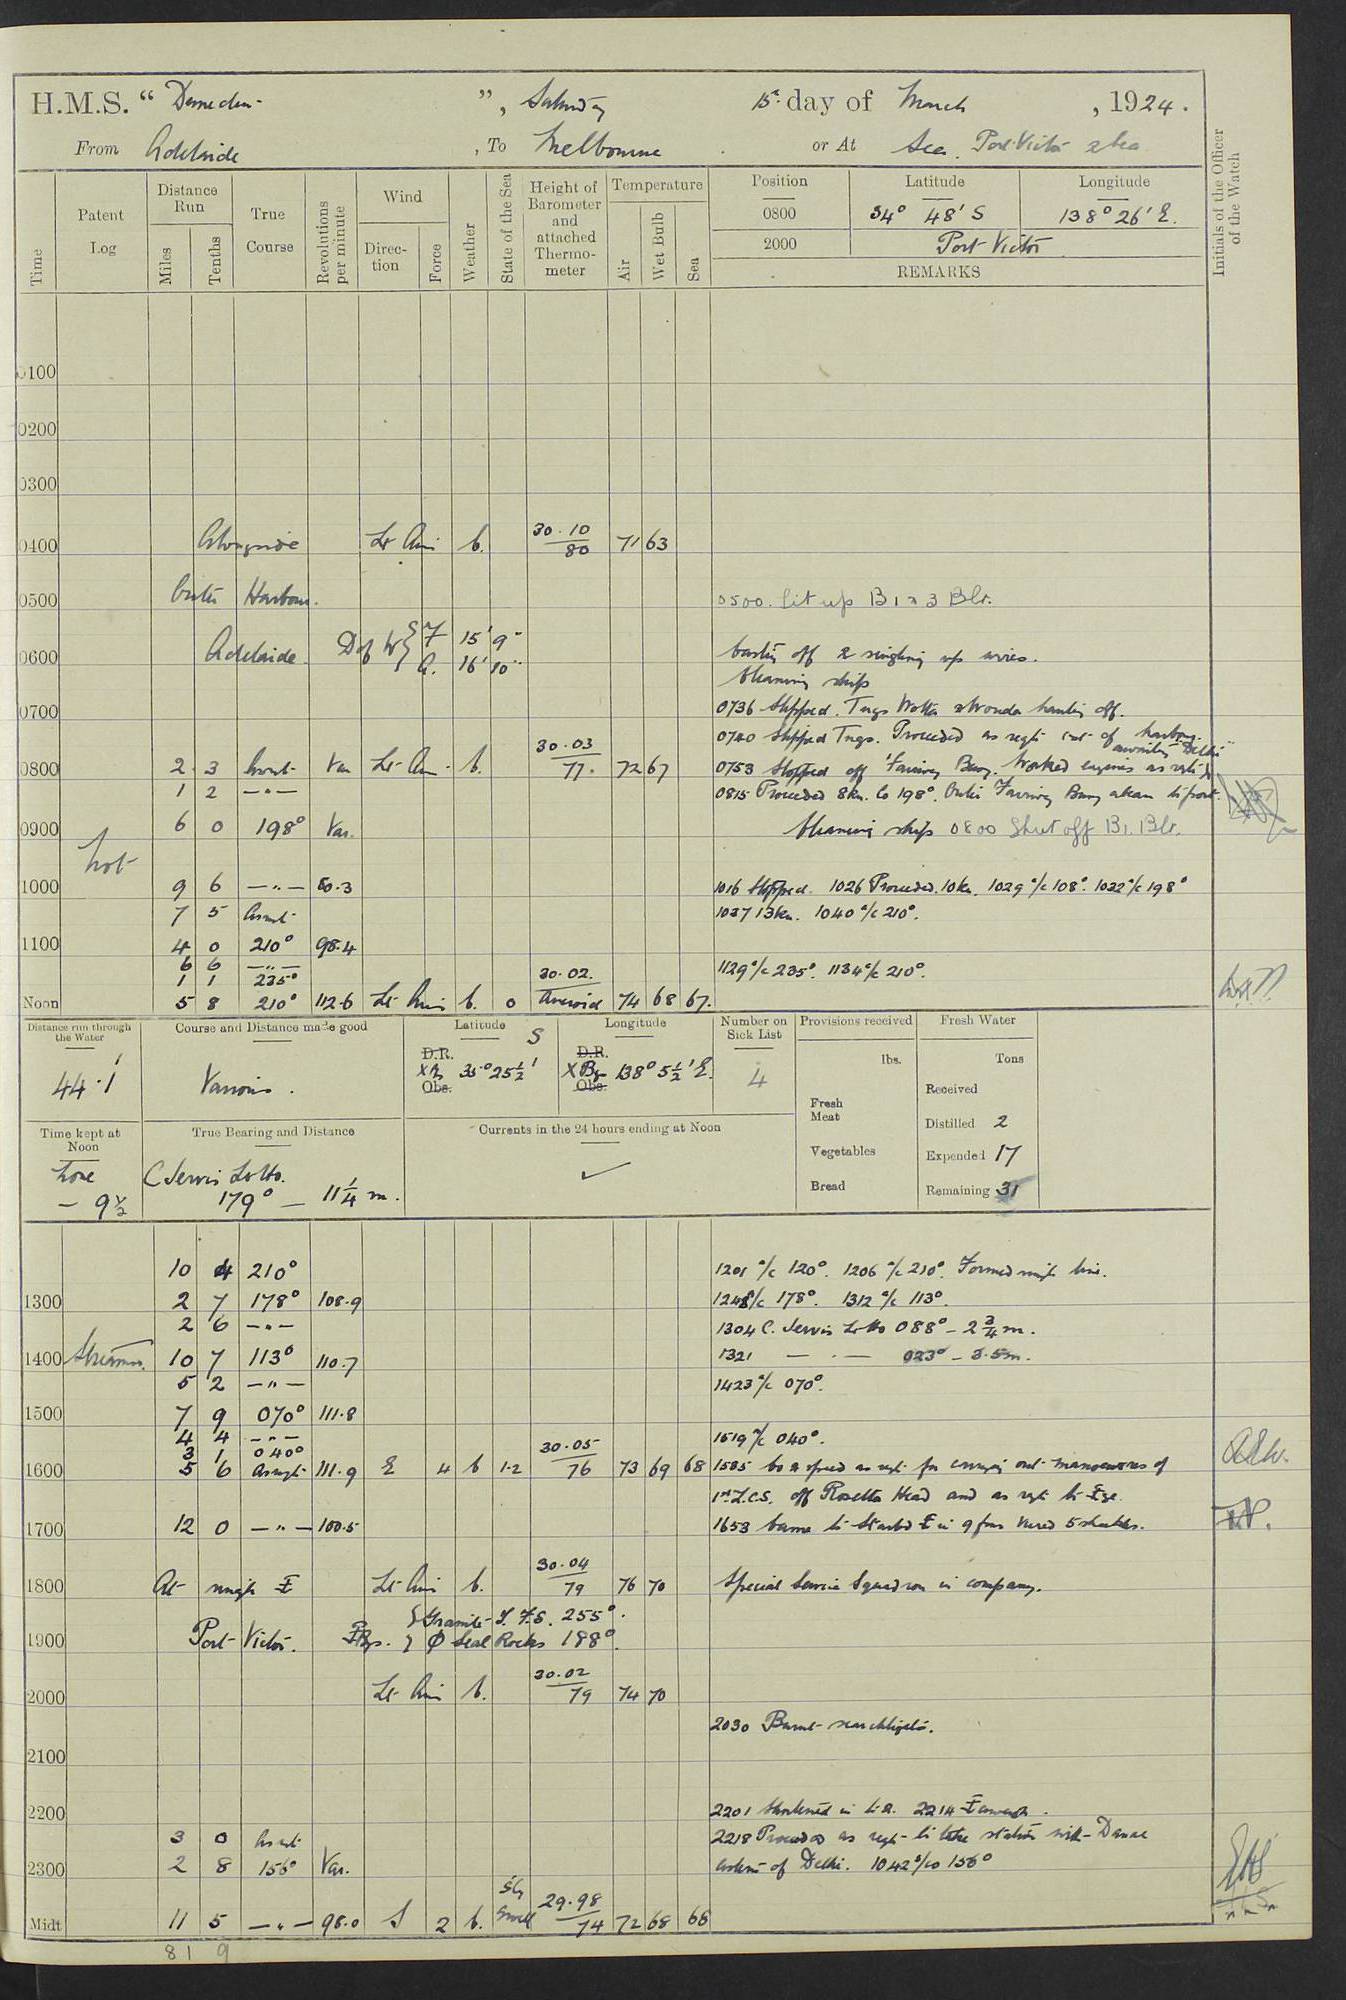 H.M.S. “ Dunedin ”, Saturday 15th day of March, 1924.
From Adelaide, To Melbourne or At Sea, Port Victor & Sea
Time
Patent Log
Distance Run
Miles
Tenths
True Course
Revolutions per minute
Wind
Direction
Force
Weather
State of the Sea
Height of Barometer and attached Thermometer
Temperature
Air
Wet Bulb
Sea
Position Latitude Longitude
0800 34° 48' S 138° 26' E.
2000 Port Victor
REMARKS
Initials of the Officer of the Watch
0100
0200
0300
0400 Alongside Lt Airs b. 30.10 80 71 63
0500 Outer Harbour. 0500. Lit up B1 & 3 Blr.
0600 Adelaide. D of W { F 15' 9" A. 16' 10" Casting off & singling up wires.
Cleaning ship
0700 0736 Slipped. Tugs Wato & Wonda hauling off.
0740 Slipped Tugs. Proceeded as reqte out of harbour.
awaiting "Delhi"
0800 2 3 Var Lt Airs b. 30.03 77. 72 67 0753 Stopped off Fairway Buoy. Worked engines as reqte
1 2 — " — 0815 Proceeded 8 kn. Co 198°. Outer Fairway Buoy abeam to port.
0900 6 0 198° Var. Cleaning ship 0800 Shut off B1. Blr.
Not
1000 9 6 — " — 80.3 1016 Stopped. 1026 Proceeded. 10 kn. 1029 a/c 108°. 1032 a/c 198°
7 5 1037 13 kn. 1040 a/c 210°.
1100 4 0 210° 98.4
6 6 — " — 1129 a/c 235°. 1134 a/c 210°.
1 1 235° 30.02.
Noon 5 8 210° 112.6 Lt Airs b. 0 Aneroid 74 68 67.
Distance run through the Water Course and Distance made good Latitude S Longitude Number on Sick List Provisions received Fresh Water
44.1 Various. D.R. X By Obs. 35° 25½' D.R. X By Obs. 138° 5½' E. 4 lbs. Tons
Received
Fresh Meat
Distilled 2
Time kept at Noon True Bearing and Distance Currents in the 24 hours ending at Noon
Vegetables Expended 17
Zone – 9½ C Jervis Lt Ho. 179° — 11¼ m. ✓
Bread Remaining 31
10 4 210° 1201 a/c 120°. 1206 a/c 210°. Formed single line.
1300 2 7 178° 108.9 1248 a/c 178°. 1312 a/c 113°.
2 6 — " — 1304 C. Jervis Lt Ho 088° – 2¾ m.
1400 10 7 113° 110.7 1321 — " — 023° – 3.5 m.
5 2 — " — 1423 a/c 070°.
1500 7 9 070° 111.8
4 4 — " — 1519 a/c 040°.
3 1 040° 30.05
1600 5 6 As reqte 111.9 E 4 b 1-2 76 73 69 68 1535 Co & speed as reqte for carrying out manoeuvres of
1st L.C.S. off Rosetta Head and as reqte to
1700 12 0 — " — 100.5 1653 Came to Starbd in 9 fms Veered 5 shackles.
1800 At single Lt Airs b. 30.04 79 76 70 Special Service Squadron in company.
Granite I. F.S. 255°.
1900 Port Victor. Bgs. Φ Seal Rocks 188°.
2000 Lt Airs b. 30.02 79 74 70
2030 Burnt searchlights.
2100
2200 2201 Shortened in to 2. 2214
3 0 2218 Proceeded as reqte to take station with Danae
2300 2 8 156° Var. astern of Delhi. 1042 a/co 156°
Midt 11 5 — " — 98.0 S 2 b. Sly Swell 29.98 74 72 68 66
81 9